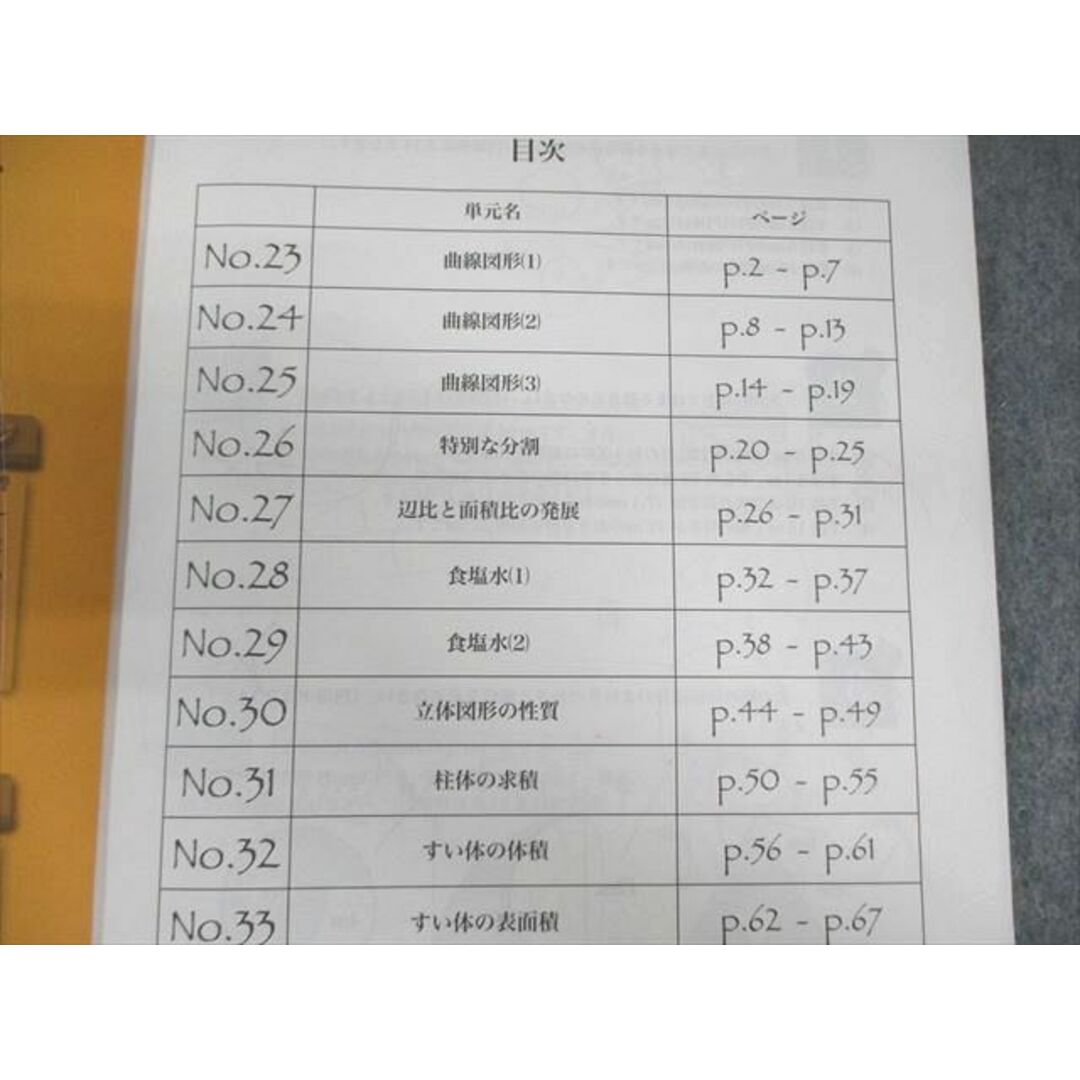 目次
単元名 ページ
No.23 曲線図形(1) p.2 - p.7
No.24 曲線図形(2) p.8 - p.13
No.25 曲線図形(3) p.14 - p.19
No.26 特別な分割 p.20 - p.25
No.27 辺比と面積比の発展 p.26 - p.31
No.28 食塩水(1) p.32 - p.37
No.29 食塩水(2) p.38 - p.43
No.30 立体図形の性質 p.44 - p.49
No.31 柱体の求積 p.50 - p.55
No.32 すい体の体積 p.56 - p.61
No.33 すい体の表面積 p.62 - p.67